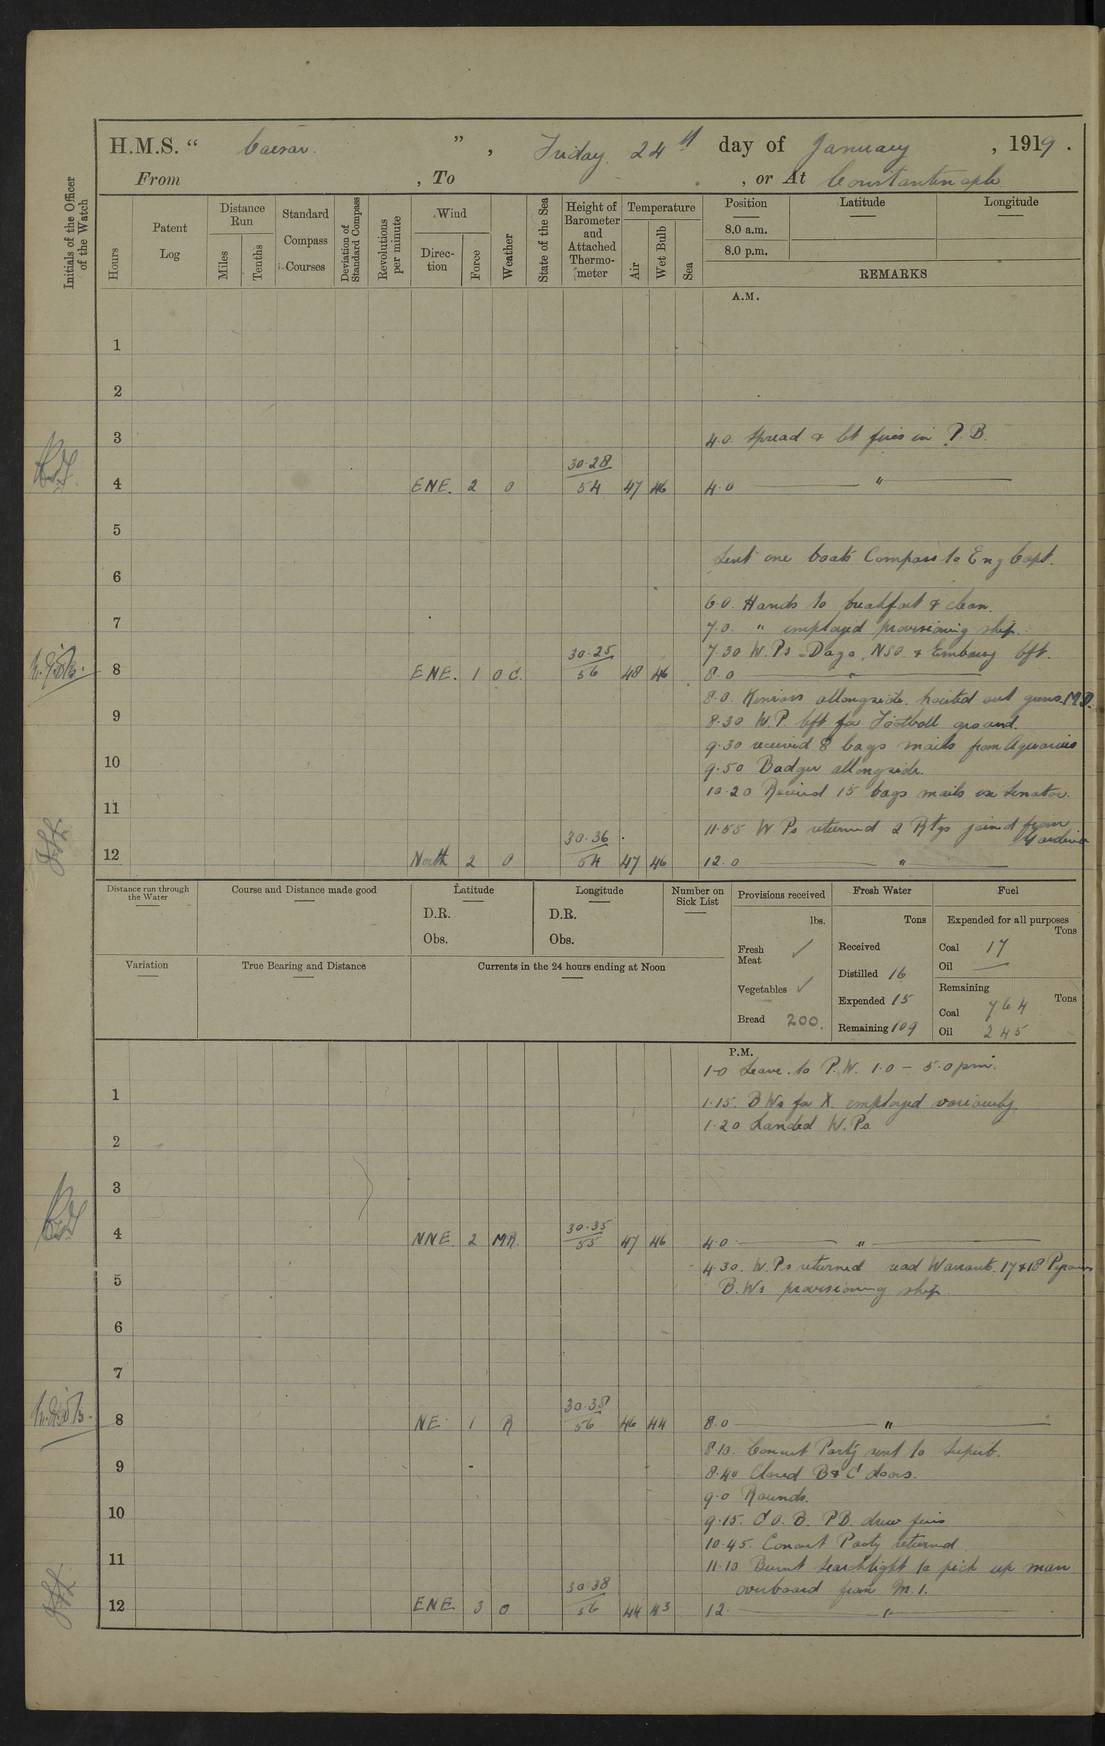 H.M.S. " Caesar. " , Friday 24th day of January , 1919 .
From , To , or At Constantinople
Initials of the Officer of the Watch
Hours
Patent Log
Distance Run
Miles
Tenths
Standard Compass Courses
Deviation of Standard Compass
Revolutions per minute
Wind
Direction
Force
Weather
State of the Sea
Height of Barometer and Attached Thermometer
Temperature
Air
Wet Bulb
Sea
Position Latitude Longitude
8.0 a.m.
8.0 p.m.
REMARKS
A.M.
1
2
3
4.0. Spread & lt fires in P.B.
4 ENE. 2 O 30.28 54 47 46 4.0 "
5
Sent one boats Compass to Eng Capt.
6
6.0. Hands to breakfast & clean.
7
7.0. " employed provisioning ship.
7.30 W.Ps. Daga, NSO. & Embassy lft.
8 ENE. 1 O C. 30.25 56 48 46 8.0 "
8.0. alongside. hoisted out guns
9
8.30 W.P. lft for Football ground.
9.30 received 8 bags mails from Aquarius
10
9.50 Badger allongside.
10.20 Received 15 bags mails ex Senator.
11
11.55 W Ps returned 2 Rtgs joined from Gardenia
12 North 2 O 30.36 54 47 46 12.0 "
Distance run through the Water
Course and Distance made good
Latitude
D.R.
Obs.
Longitude
D.R.
Obs.
Number on Sick List
Provisions received
lbs.
Fresh Meat ✓
Vegetables ✓
Bread 200.
Fresh Water
Tons
Received
Distilled 16
Expended 15
Remaining 109
Fuel
Expended for all purposes
Tons
Coal 17
Oil —
Remaining
Tons
Coal 764
Oil 245
Variation
True Bearing and Distance
Currents in the 24 hours ending at Noon
P.M.
1.0 Leave to P.W. 1.0 - 5.0 pm.
1
1.15. B Ws for X. employed variously.
1.20 Landed W.Ps
2
3
4 NNE. 2 MR. 30.35 55 47 46 4.0 "
4.30. W.Ps returned read Warrants 17 & 18
5
B.Ws provisioning ship.
6
7
8 NE. 1 R 30.38 56 46 44 8.0 "
8.10. Concert Party sent to Superb.
9
8.40 Closed B & C doors.
9.0 Rounds.
10
9.15. P.B. drew fires
10.45. Concert Party returned
11
11.10 Burnt searchlight to pick up man
overboard from M.1.
12 ENE 3 O 30.38 56 44 43 12. "